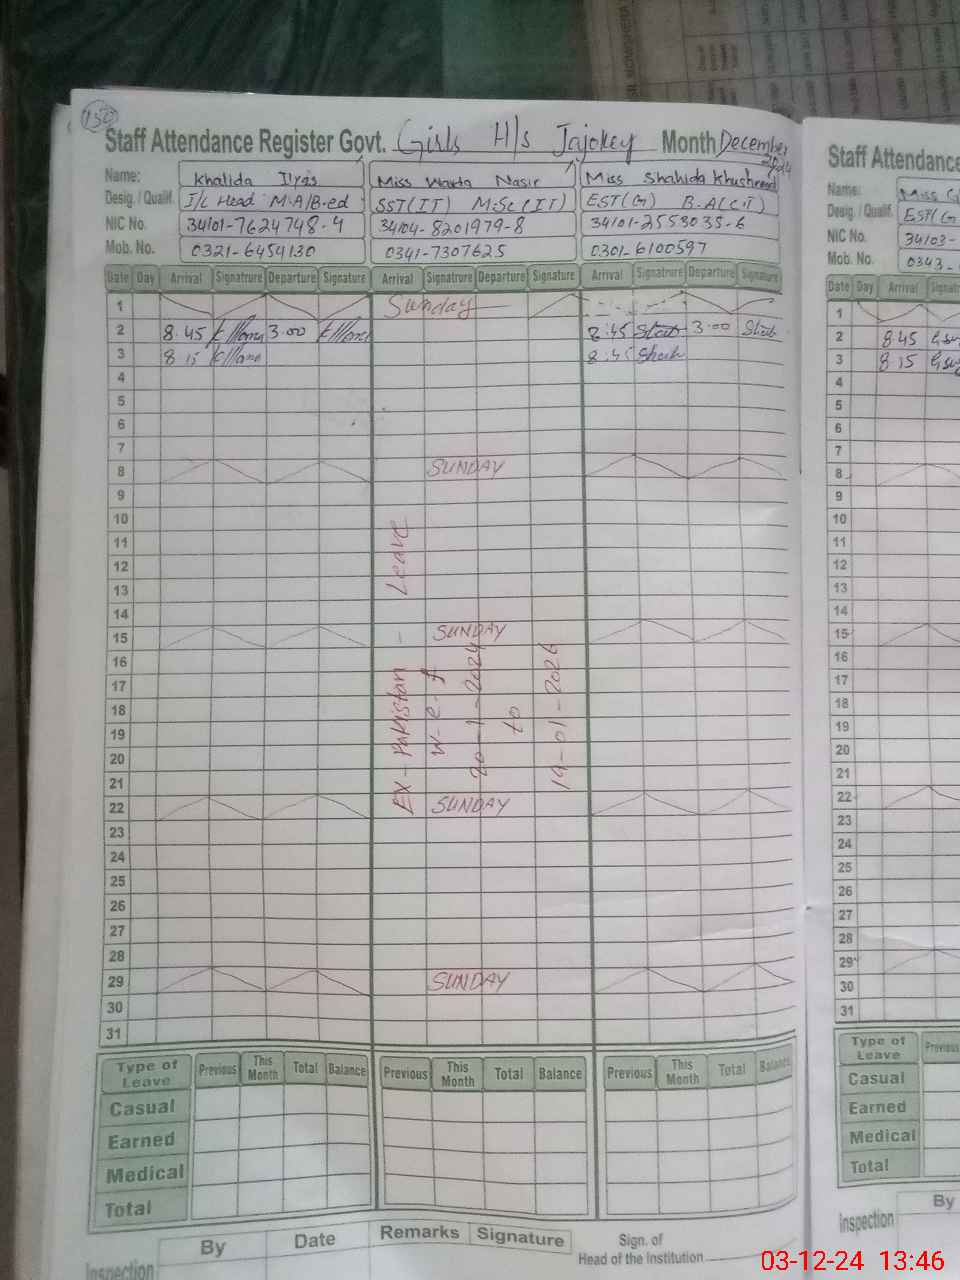 150
Staff Attendance Register Govt. Girls H/s Jajokey Month December 2024
Name: Khalida Ilyas Miss Warda Nasir Miss Shahida Khushnood
Desig. / Qualif. I/c Head M.A/B.ed SST(IT) M.Sc(IT) EST(G) B.A(C.T)
NIC No. 34101-7624748-4 34104-8201979-8 34101-2558035-6
Mob. No. 0321-6454130 0341-7307625 0301-6100597
Date Day Arrival Signatrure Departure Signature Arrival Signatrure Departure Signature Arrival Signatrure Departure Signature
1 Sunday
2 8.45 3.00 8:45 3.00
3 8 15
4
5
6
7
8 SUNDAY
9
10
11
12
13
14
15 SUNDAY
16
17
18
19
20
21
22 SUNDAY
23
24
25
26
27
28
29 SUNDAY
30
31
EX-Pakistan - Leave
w-e-f
20-1-2024
to
19-01-2026
Type of Leave Previous This Month Total Balance Previous This Month Total Balance Previous This Month Total Balance
Casual
Earned
Medical
Total
Inspection By Date Remarks Signature Sign. of Head of the Institution
Staff Attendance
Name: Miss
Desig. / Qualif. EST(G
NIC No. 34103-
Mob. No. 0343-
Date Day Arrival
1
2 8.45
3 8.15
4
5
6
7
8
9
10
11
12
13
14
15
16
17
18
19
20
21
22
23
24
25
26
27
28
29
30
31
Type of Leave Previous
Casual
Earned
Medical
Total
Inspection By
03-12-24 13:46